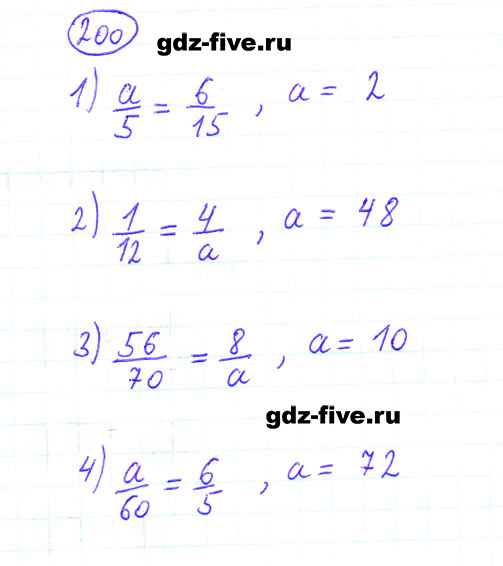 200 gdz-five.ru
1) a/5 = 6/15 , a = 2
2) 1/12 = 4/a , a = 48
3) 56/70 = 8/a , a = 10
gdz-five.ru
4) a/60 = 6/5 , a = 72